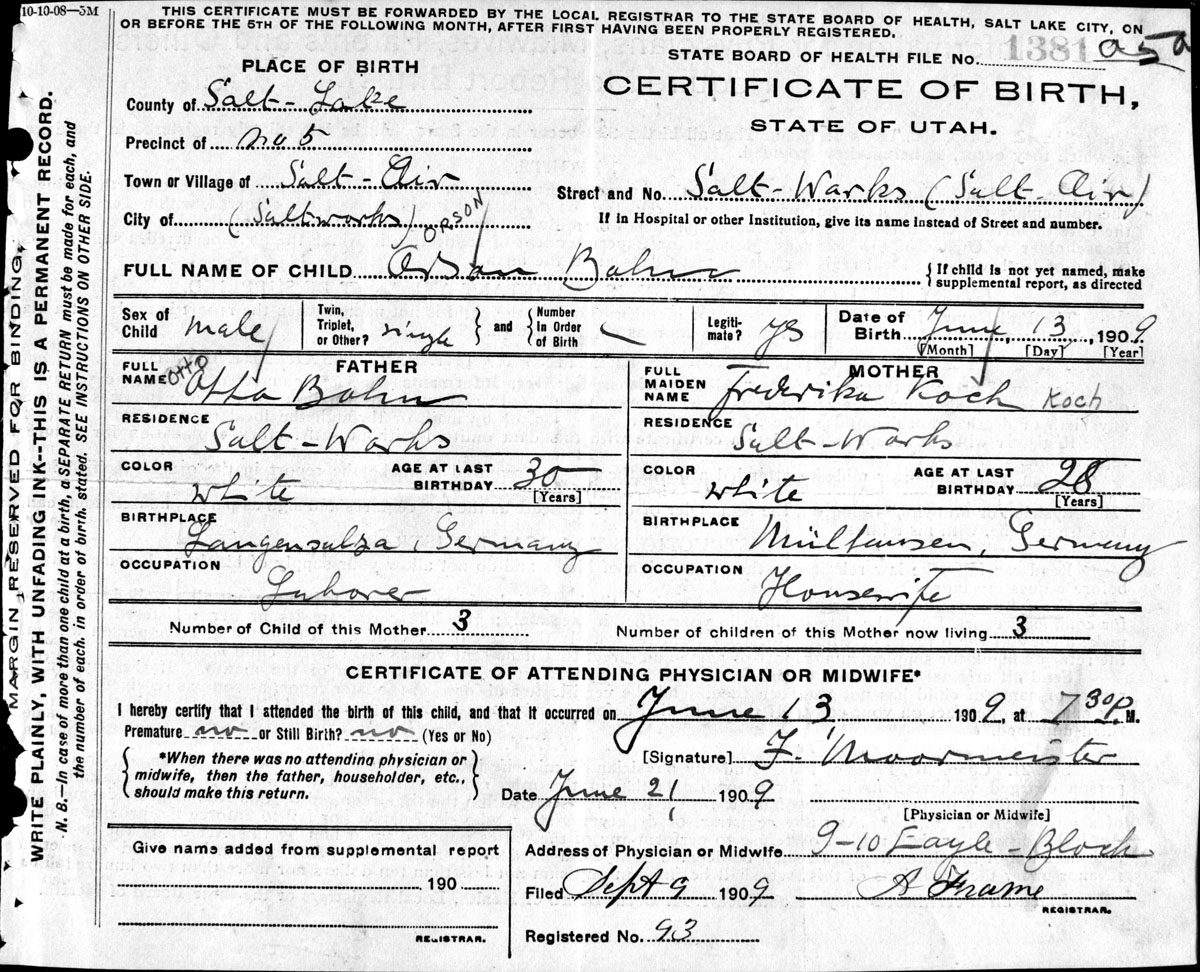 10-10-08—5M
THIS CERTIFICATE MUST BE FORWARDED BY THE LOCAL REGISTRAR TO THE STATE BOARD OF HEALTH, SALT LAKE CITY, ON
OR BEFORE THE 5TH OF THE FOLLOWING MONTH, AFTER FIRST HAVING BEEN PROPERLY REGISTERED.
STATE BOARD OF HEALTH FILE No. 1381
PLACE OF BIRTH
CERTIFICATE OF BIRTH,
STATE OF UTAH.
County of Salt-Lake
Precinct of No 5
Town or Village of Salt-Air
Street and No. Salt-Works (Salt-Air)
City of (Saltworks)
If in Hospital or other Institution, give its name Instead of Street and number.
ORSON
FULL NAME OF CHILD Orson Bahn
{If child is not yet named, make supplemental report, as directed
Sex of Child male
Twin, Triplet, or Other? single } and { Number In Order of Birth
Legiti-mate? yes
Date of Birth June 13, 1909
[Month] [Day] [Year]
FATHER
FULL NAME Otto Bahn
OTTO
RESIDENCE Salt-Works
COLOR white
AGE AT LAST BIRTHDAY 30
[Years]
BIRTHPLACE Langensalza, Germany
OCCUPATION Laborer
MOTHER
FULL MAIDEN NAME Frederika Koch Koch
RESIDENCE Salt-Works
COLOR white
AGE AT LAST BIRTHDAY 28
[Years]
BIRTHPLACE Mülhausen, Germany
OCCUPATION Housewife
Number of Child of this Mother 3
Number of children of this Mother now living 3
CERTIFICATE OF ATTENDING PHYSICIAN OR MIDWIFE*
I hereby certify that I attended the birth of this child, and that it occurred on June 13, 1909, at 7 30 P. M.
Premature no or Still Birth? no (Yes or No)
{*When there was no attending physician or midwife, then the father, householder, etc., should make this return.}
[Signature] F. Moormeister
Date June 21, 1909
[Physician or Midwife]
Give name added from supplemental report
190
REGISTRAR.
Address of Physician or Midwife 9-10 Eagle-Block
Filed Sept 9 1909 A Frame
REGISTRAR.
Registered No. 93
MARGIN RESERVED FOR BINDING.
WRITE PLAINLY, WITH UNFADING INK--THIS IS A PERMANENT RECORD.
N. B.—In case of more than one child at a birth, a SEPARATE RETURN must be made for each, and
the number of each, in order of birth, stated. SEE INSTRUCTIONS ON OTHER SIDE.